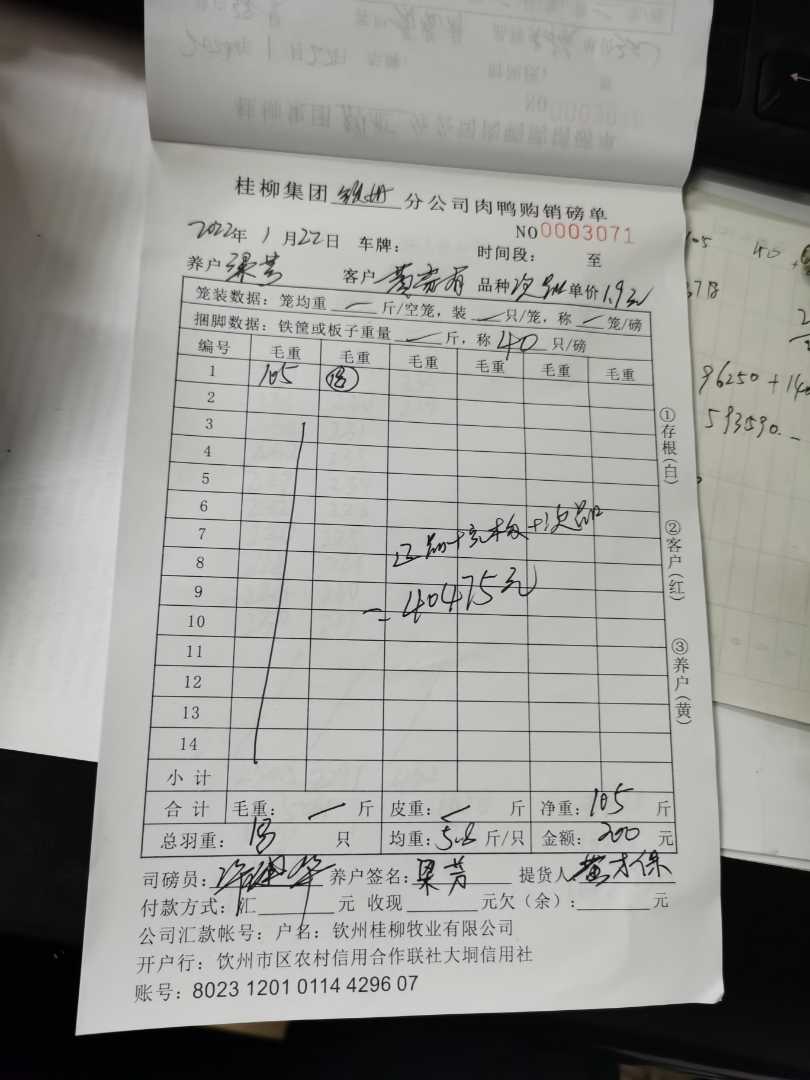 桂柳集团 钦州 分公司肉鸭购销磅单
NO 0003071
2022年 1 月 22 日 车牌: 时间段: 至
养户 客户 黄 品种 次品 单价 1.9元
笼装数据: 笼均重 — 斤/空笼, 装 — 只/笼, 称 — 笼/磅
捆脚数据: 铁筐或板子重量 — 斤, 称 40 只/磅
编号 毛重 毛重 毛重 毛重 毛重 毛重
1 105
2
3
4
5
6
7
8
9
10
11
12
13
14
小计
正品+ +次品
=40475元
合计 毛重: — 斤 皮重: — 斤 净重: 105 斤
总羽重: 只 均重: 斤/只 金额: 200 元
司磅员: 养户签名: 提货人
付款方式: 汇 元 收现 元欠(余): 元
公司汇款帐号: 户名: 钦州桂柳牧业有限公司
开户行: 饮州市区农村信用合作联社大垌信用社
账号: 8023 1201 0114 4296 07
①存根(白)
②客户(红)
③养户(黄)
105 40 +
96250 + 140
593590.-